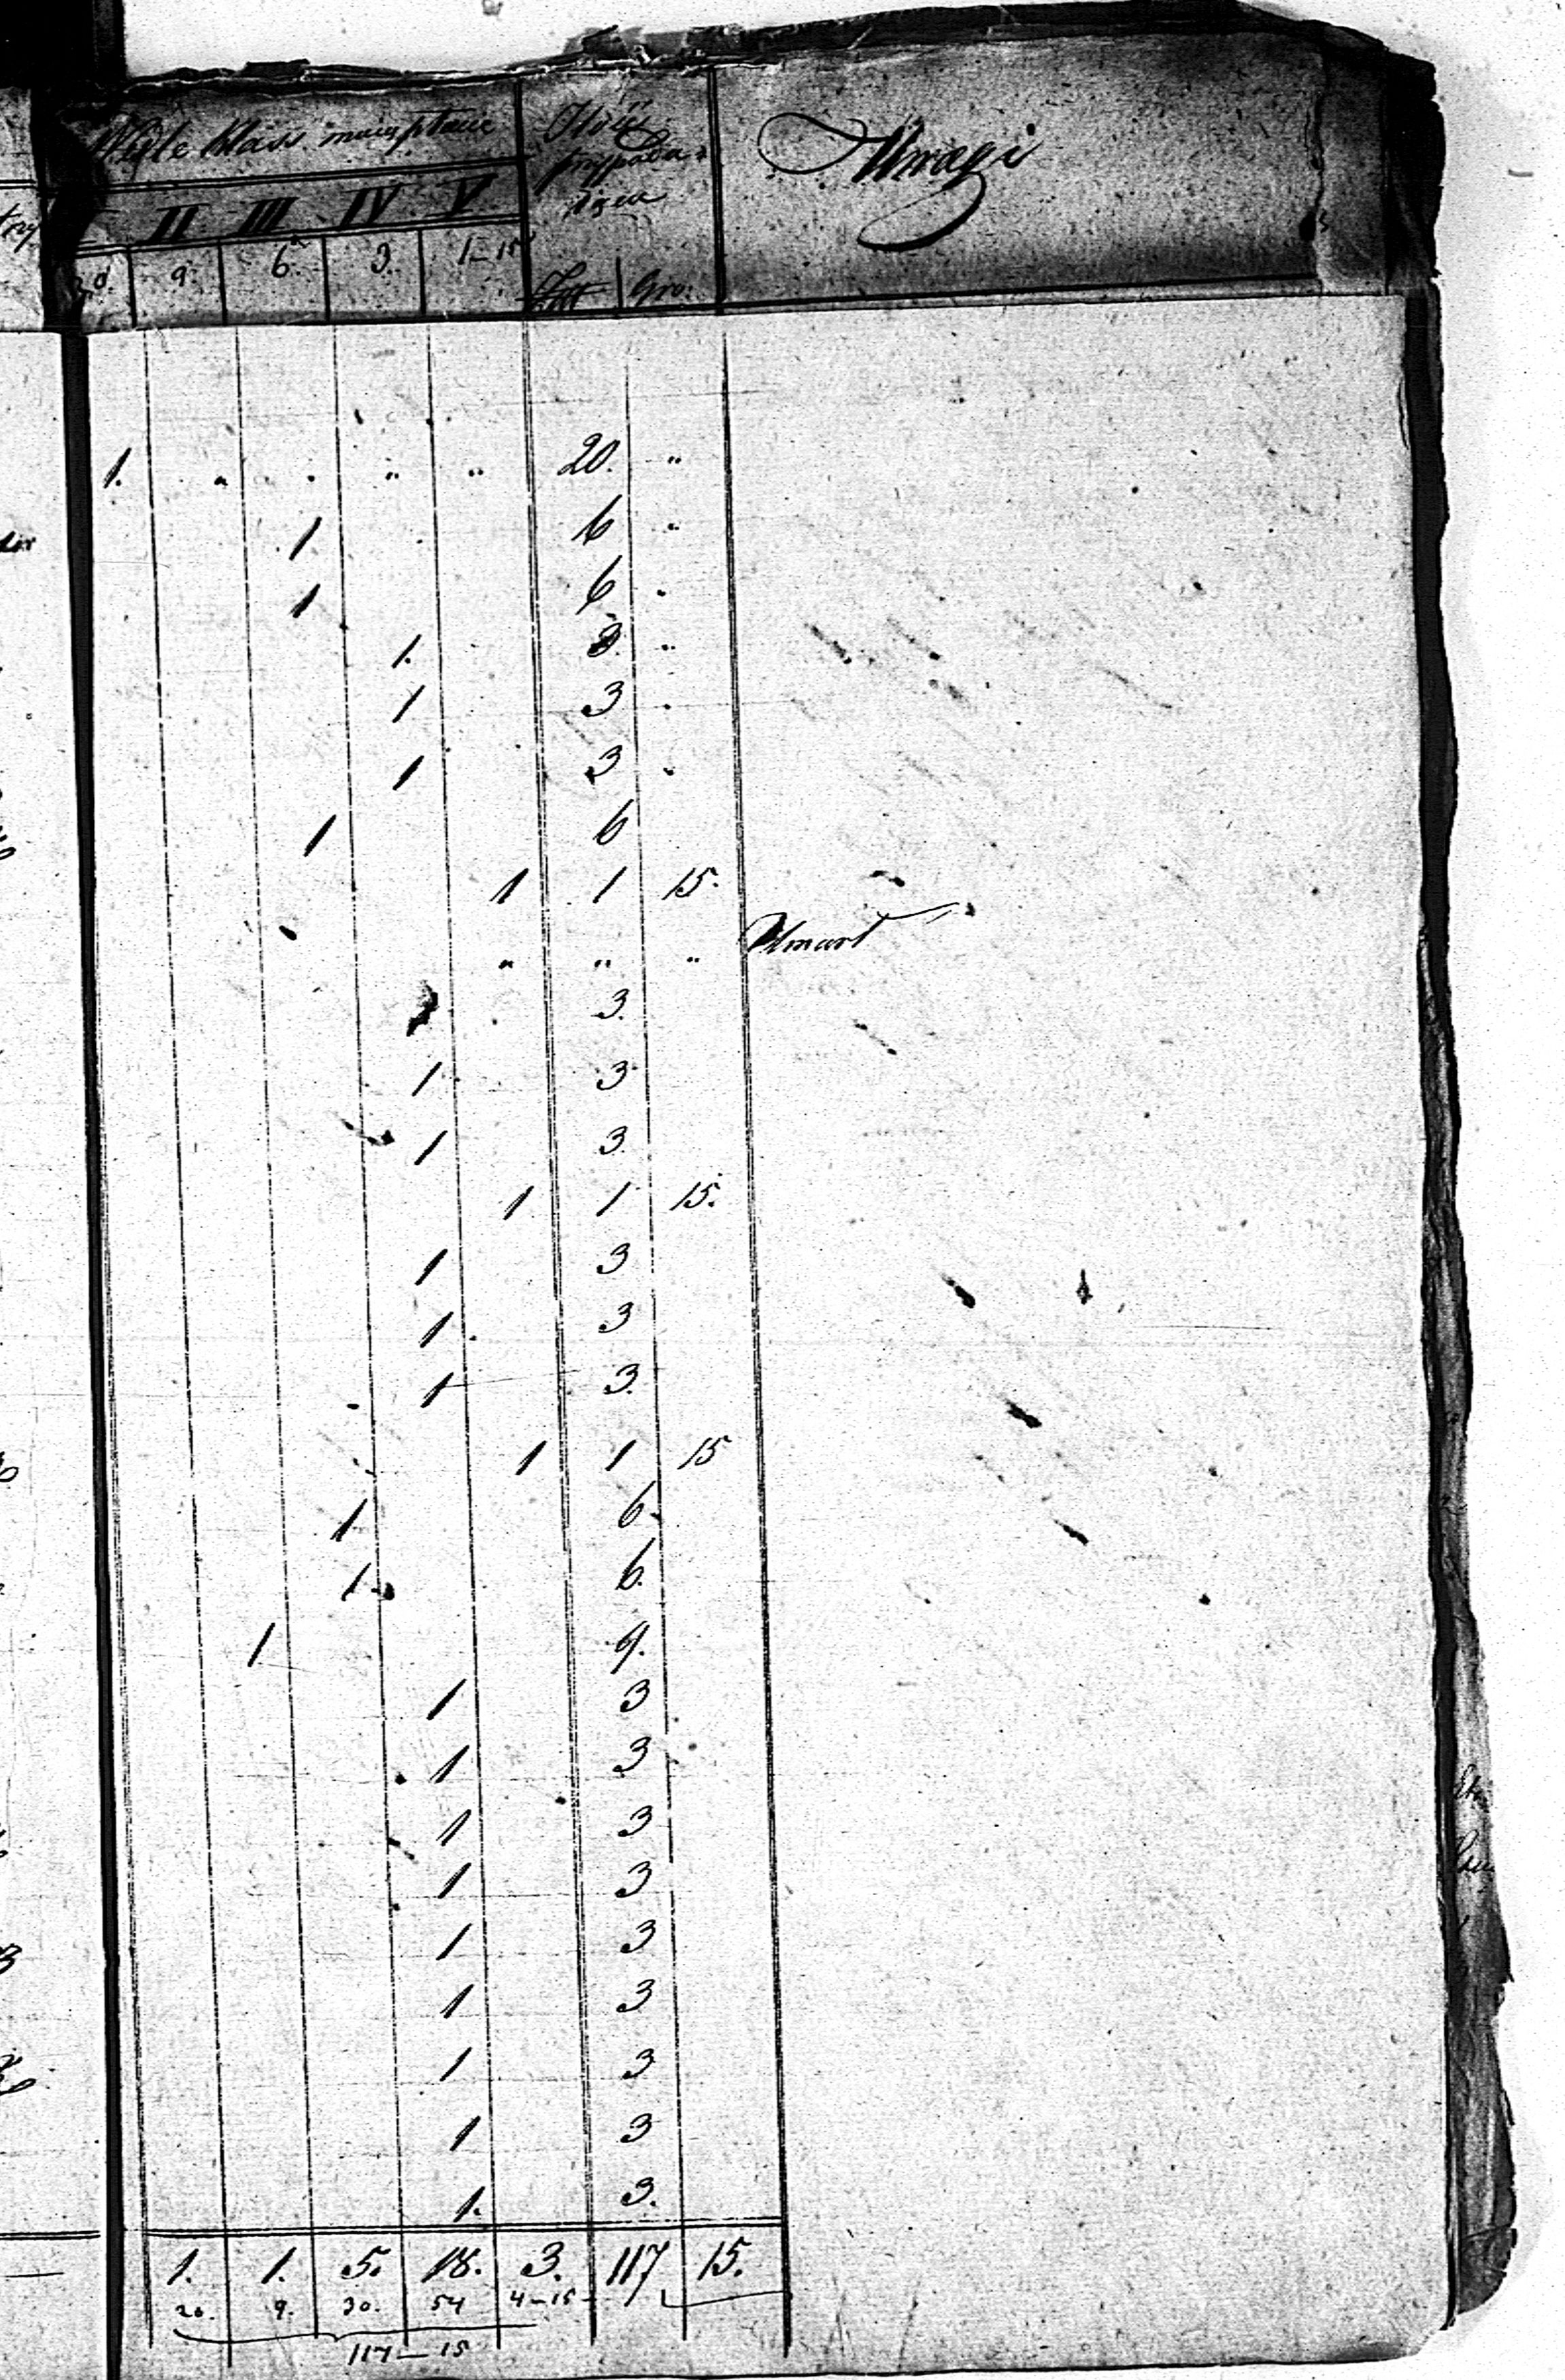 klass
Uwagi
II III IV V
9. 6. 3. 1–15
Gro:
1. " " " " 20. "
1 6 "
1 6 "
1. 3. "
1 3 "
1 3 "
1 6
1 1 15.
" " " Umarł
3.
1 3
1 3.
1 1 15.
1 3
1 3
1 3.
1 1 15
1 6.
1 6.
1 9.
1 3
1 3
1 3
1 3
1 3
1 3
1 3
1 3
1. 3.
1. 1. 5. 18. 3. 117 15.
20. 9. 30. 54 4–15
117–15